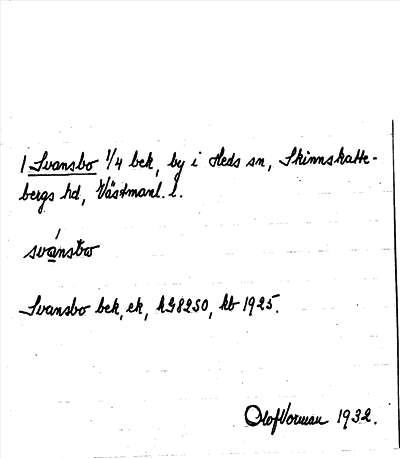 1 Svansbo 1/4 bek, by i Heds sn, Skinnskatte-
bergs hd, Västmanl. l.
svánsbo
Svansbo bek, ek, hG8250, kb 1925.
Olof Vorman 1932.